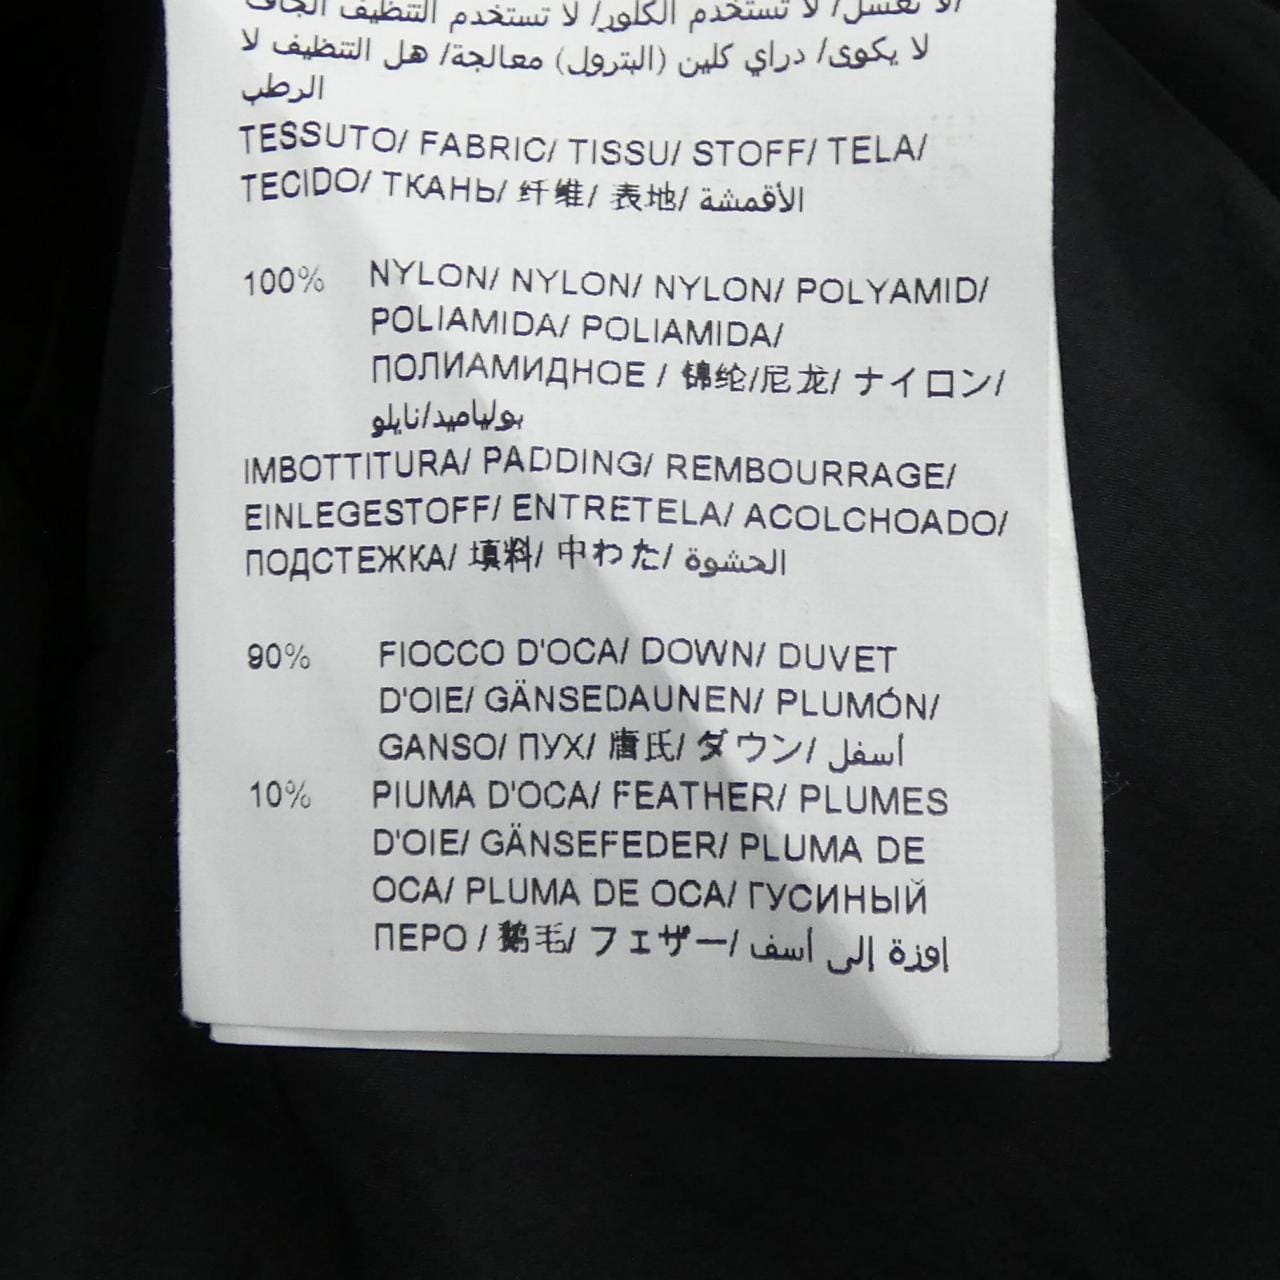 لا تغسل/ لا تستخدم الكلور/ لا تستخدم التنظيف الجاف/
لا يكوى/ دراي كلين (البترول) معالجة/ هل التنظيف لا
الرطب
TESSUTO/ FABRIC/ TISSU/ STOFF/ TELA/
TECIDO/ ТКАНЬ/ 纤维/ 表地/ الأقمشة
100% NYLON/ NYLON/ NYLON/ POLYAMID/
POLIAMIDA/ POLIAMIDA/
ПОЛИАМИДНОЕ / 锦纶/尼龙/ ナイロン/
بولياميد/نايلو
IMBOTTITURA/ PADDING/ REMBOURRAGE/
EINLEGESTOFF/ ENTRETELA/ ACOLCHOADO/
ПОДСТЕЖКА/ 填料/ 中わた/ الحشوة
90% FIOCCO D'OCA/ DOWN/ DUVET
D'OIE/ GÄNSEDAUNEN/ PLUMÓN/
GANSO/ ПУХ/ 唐氏/ ダウン/ أسفل
10% PIUMA D'OCA/ FEATHER/ PLUMES
D'OIE/ GÄNSEFEDER/ PLUMA DE
OCA/ PLUMA DE OCA/ ГУСИНЫЙ
ПЕРО / 鹅毛/ フェザー/ إوزة إلى أسف